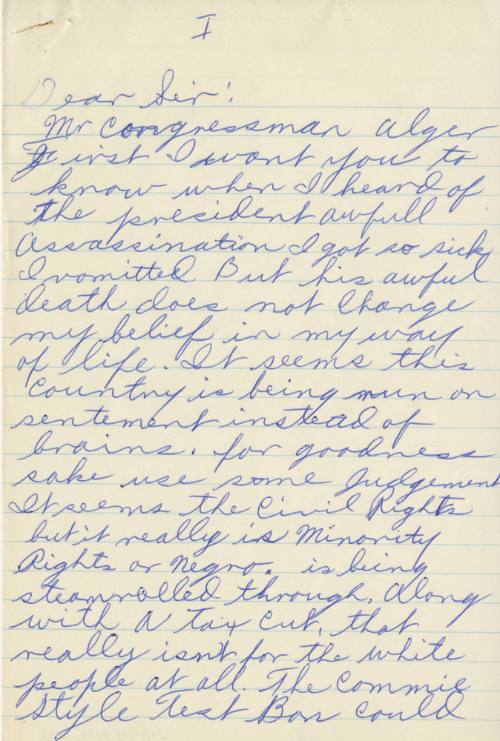 I
Dear Sir!
Mr Congressman Alger
First I want you to
know when I heard of
the president awfull
Assassination I got so sick
I vomitted But his awful
death does not Change
my belief in my way
of life. It seems this
Country is being run on
sentement instead of
brains. for goodness
sake use some Judgement
It seems the Civil Rights
but it really is Minority
Rights or Negro. is being
steamrolled through. Along
with A Tax Cut, that
really isnt for the white
people at all. The Commie
Style Test Ban Could